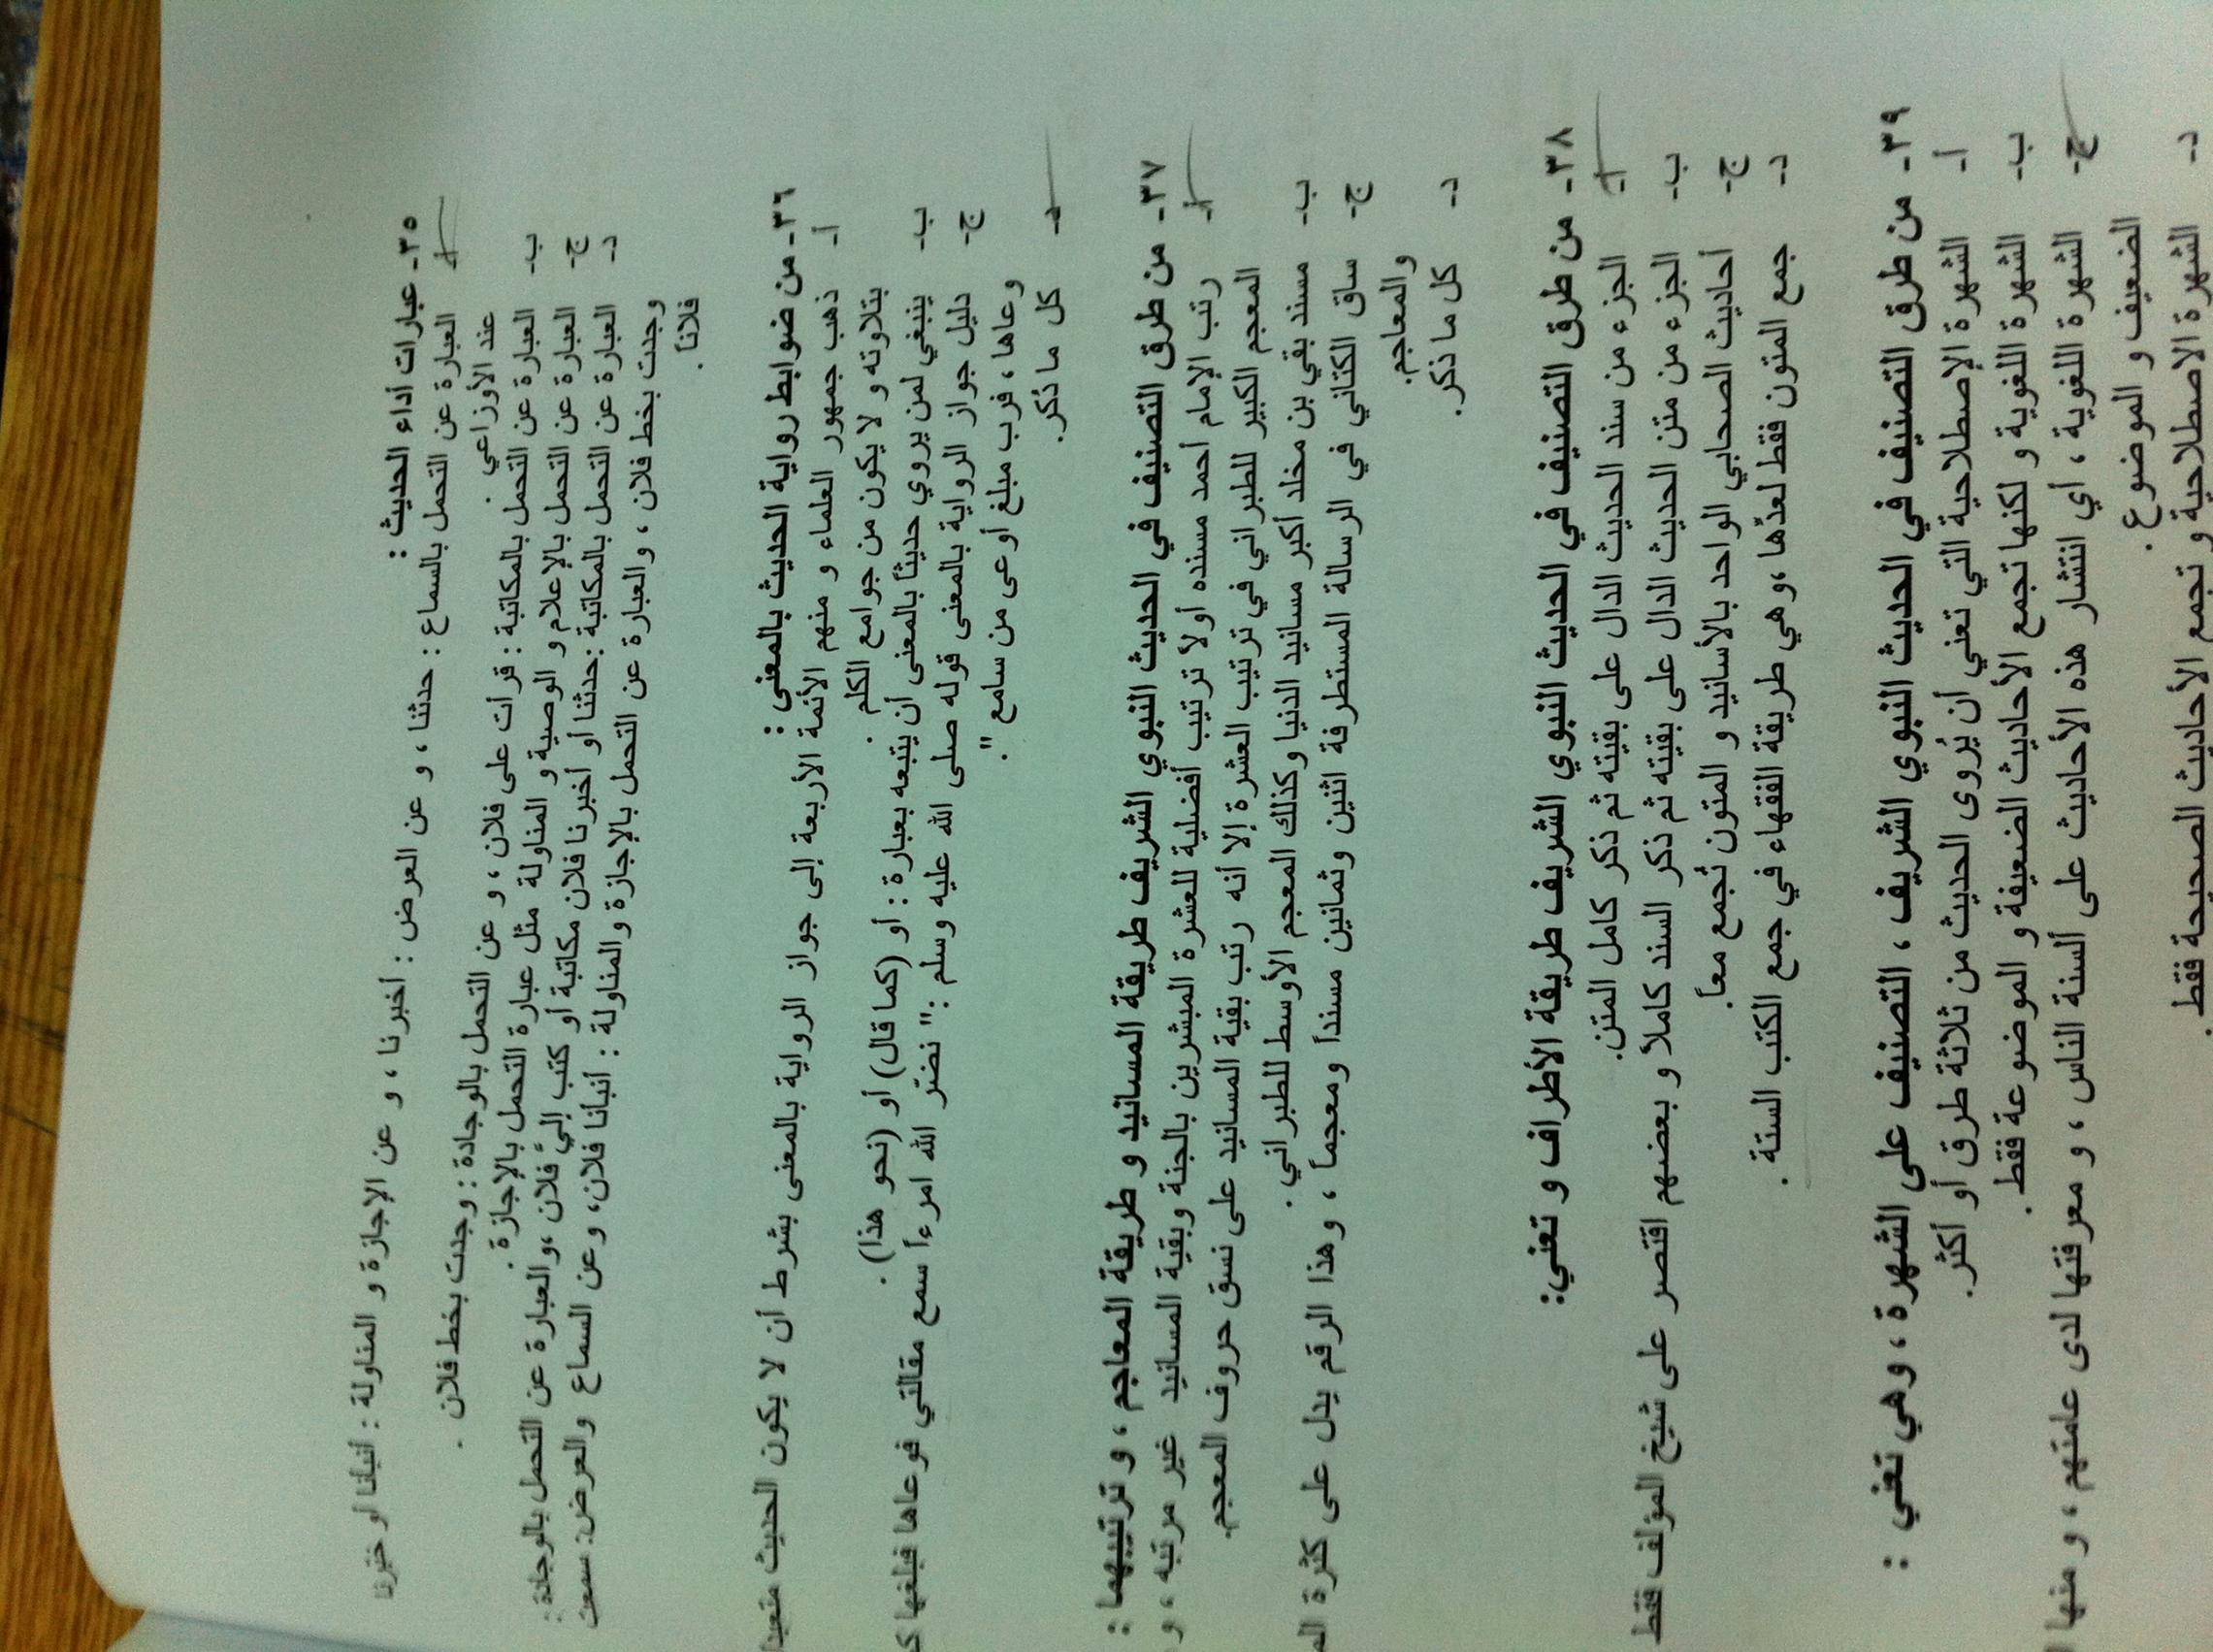 ٣٥- عبارات أداء الحديث :
أ- العبارة عن التحمل بالسماع : حدثنا ، و عن العرض : أخبرنا ، و عن الإجازة و المناولة : أنبأنا أو خبّرنا
عند الأوزاعي . و عن التحمل بالوجادة : وجدت بخط فلان .
ب- العبارة عن التحمل بالمكاتبة : قرأت على فلان ، و عن التحمل بالوجادة : وجدت بخط فلان .
ج- العبارة عن التحمل بالإعلام و الوصية و المناولة مثل عبارة التحمل بالإجازة .
د- العبارة عن التحمل بالمكاتبة :حدثنا أو أخبرنا فلان مكاتبة أو كتب إليَّ فلان ،والعبارة عن التحمل بالوجادة:
وجدت بخط فلان ، والعبارة عن التحمل بالإجازة والمناولة : أنبأنا فلان، وعن السماع والعرض: سمعت
فلاناً .
٣٦- من ضوابط رواية الحديث بالمعنى :
أ- ذهب جمهور العلماء و منهم الأئمة الأربعة إلى جواز الرواية بالمعنى بشرط أن لا يكون الحديث متعبداً
بتلاوته و لا يكون من جوامع الكلم .
ب- ينبغي لمن يروي حديثاً بالمعنى أن يتبعه بعبارة : أو (كما قال) أو (نحو هذا) .
ج- دليل جواز الرواية بالمعنى قوله صلى الله عليه وسلم :" نضّر الله امرءاً سمع مقالتي فوعاها فبلغها
وعاها ، فرب مبلغ أوعى من سامع ".
د- كل ما ذُكر.
٣٧- من طرق التصنيف في الحديث النبوي الشريف طريقة المسانيد و طريقة المعاجم ، و ترتيبهما :
أ- رتب الإمام أحمد مسنده أولاً ترتيب أفضلية للعشرة المبشرين بالجنة وبقية المسانيد غير مرتبه ، و
المعجم الكبير للطبراني في ترتيب العشرة إلا أنه رتب بقية المسانيد على نسق حروف المعجم.
ب- مسند بقي بن مخلد أكبر مسانيد الدنيا وكذلك المعجم الأوسط للطبراني .
ج- ساق الكتاني في الرسالة المستطرفة اثنين وثمانين مسنداً ومعجماً ، وهذا الرقم يدل على كثرة
والمعاجم.
د- كل ما ذكر.
٣٨- من طرق التصنيف في الحديث النبوي الشريف طريقة الأطراف و تعني:
أ- الجزء من سند الحديث الدال على بقيته ثم ذكر كامل المتن.
ب- الجزء من متن الحديث الدال على بقيته ثم ذكر السند كاملاً و بعضهم اقتصر على شيخ المؤلف فقط
ج- أحاديث الصحابي الواحد بالأسانيد و المتون تُجمع معاً.
د- جمع المتون فقط لعدّها ،وهي طريقة الفقهاء في جمع الكتب الستة .
٣٩- من طرق التصنيف في الحديث النبوي الشريف ، التصنيف على الشهرة ، وهي تعني :
أ- الشهرة الإصطلاحية التي تعني أن يُروى الحديث من ثلاثة طرق أو أكثر.
ب- الشهرة اللغوية و لكنها تجمع الأحاديث الضعيفة و الموضوعة فقط .
ج- الشهرة اللغوية ، أي انتشار هذه الأحاديث على ألسنة الناس ، و معرفتها لدى عامتهم ، و منها
الضعيف و الموضوع .
د- الشهرة الاصطلاحية و تجمع الأحاديث الصحيحة فقط .